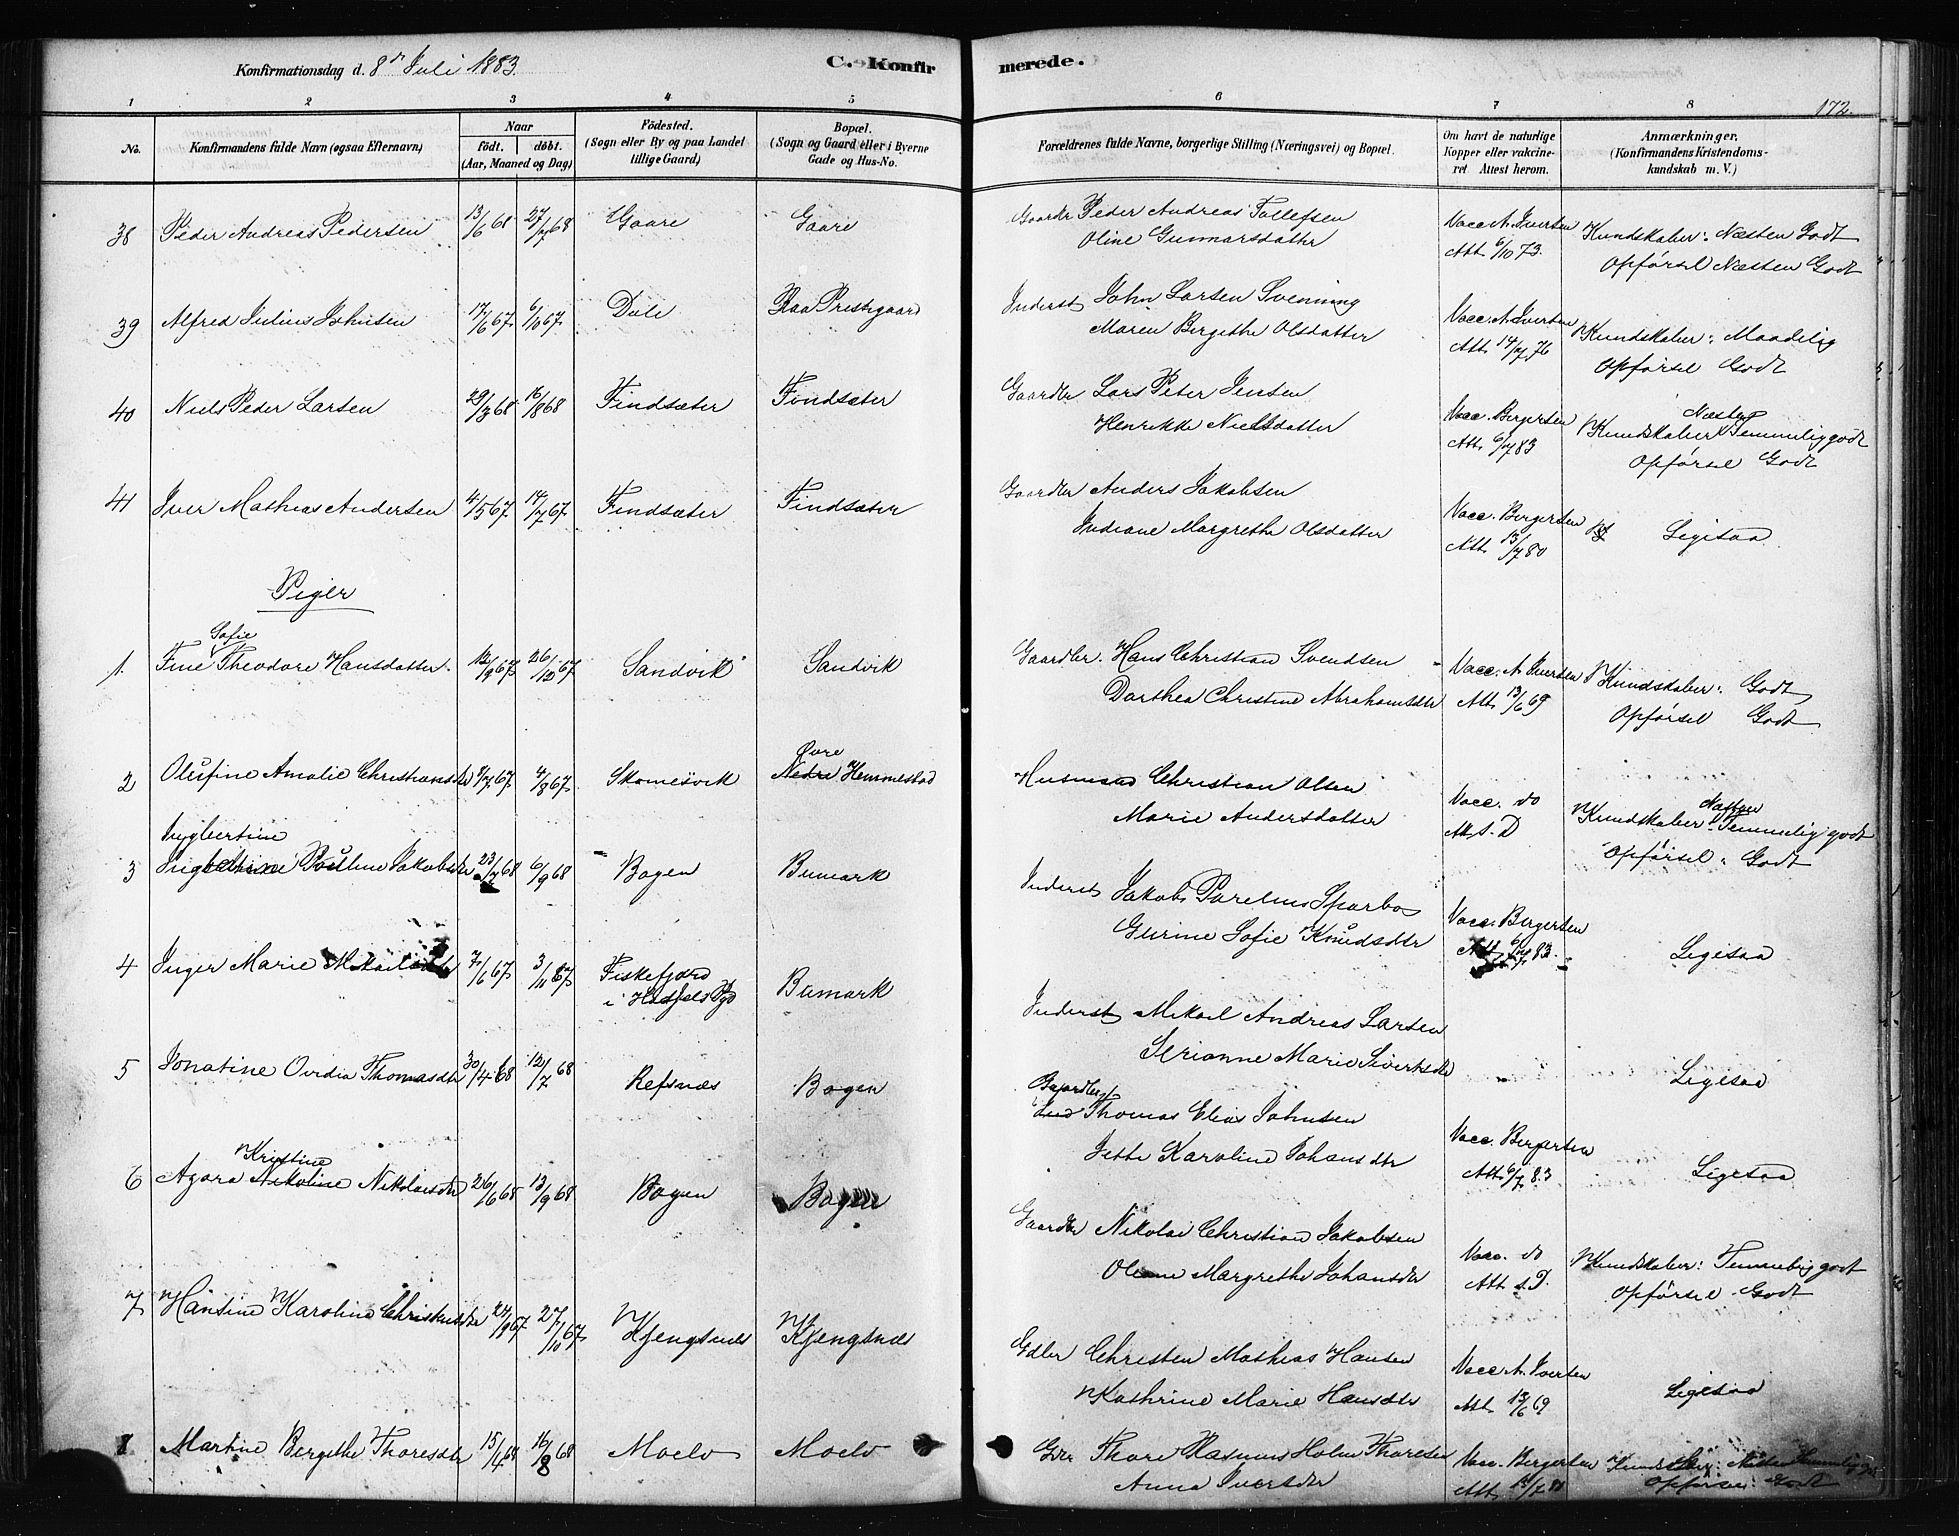 Konfirmationsdag d. 8de Juli 1883.
C. Konfirmerede.
172.
1 2 3 4 5 6 7 8
No.
Konfirmandens fulde Navn (ogsaa Efternavn)
Naar
födt. döbt.
(Aar, Maaned og Dag)
Födested.
(Sogn eller By og paa Landet
tillige Gaard)
Bopæl.
(Sogn og Gaard eller i Byerne
Gade og Hus-No.
Forældrenes fulde Navne, borgerlige Stilling (Næringsvei) og Bopæl.
Om havt de naturlige
Kopper eller vakcine-
ret Attest herom.
Anmærkninger.
(Konfirmandens Kristendoms-
kundskab m. V.)
38 Peder Andreas Pedersen 13/6 68 27/7 68 Gaare Gaare Gaardbr Peder Andreas Tollefsen Vacc. A. Ivertsen Kundskaber: Næsten Godt
Oline Gunnarsdatter Att. 6/10 73. Opførsel Næsten Godt
39 Alfred Julius Johnsen 17/6 67 6/10 67 Dale Præstegaard Inderst John Larsen Svenning Vacc. A. Ivertsen Kundskaber: Maadelig
Maren Bergithe Olsdatter Att. 14/7 76 Opførsel Godt
40 Niels Peder Larsen 29/3 68 16/8 68 Findsæter Findsæter Gaardbr Lars Peter Jensen Vacc. Bergersen Kundskaber Næsten Temmelig godt
Henrikke Nielsdatter Att. 6/7 83 Opførsel Godt
41 Iver Mathias Andersen 4/5 67 14/7 67 Findsæter Findsæter Gaardbr Anders Jakobsen Vacc. Bergersen Ligesaa
Indiane Margrethe Olsdatter Att. 13/7 80
Piger
1. Fine Sofie Theodore Hansdatter 12/9 67 26/12 67 Sandvik Sandvik Gaardbr. Hans Christian Svendsen Vacc. A. Ivertsen Kundskaber: Godt
Dorthea Christine Abrahamsdtr Att. 13/6 69 Opførsel Godt
2 Olufine Amalie Christiansdtr 7/7 67 4/8 67 Skomesvik Nedre Øvre Hemmestad Husmand Christian Olsen Vacc. do Kundskaber: Næsten Temmelig godt
Marie Andersdatter Att. s. D Opførsel: Godt
3 Ingbertine Pauline Jakobsdtr 23/7 68 6/9 68 Bogen Bumark Inderst Jakob Parelius Sparbo Vacc. Bergersen Ligesaa
Gurine Sofie Knudsdtr Att. 6/7 83.
4 Inger Marie Mikalsdtr 7/6 67 3/11 67 Fiskefjord Bumark Inderst Mikael Andreas Larsen Ligesaa
i Hadsels Pgd Serianne Marie Sivertsdtr
5 Jonatine Ovidia Thomasdtr 30/4 68 12/7 68 Refsnæs Bogen Gaardbr Ind Thomas Elias Johnsen Vacc. Bergersen Ligesaa
Jette Karoline Johansdtr Att. 6/7 83
6 Agara Nikoline Kristine Nikolaisdtr 26/6 68 13/9 68 Bogen Bogen Gaardbr Nikolai Christian Jakobsen Vacc. do Kundskaber: Temmelig godt
Oline Margrethe Johansdtr Att. s. D. Opførsel Godt
7 Hansine Karoline Christensdtr 24/8 67 27/10 67 Kjengsnæs Kjengsnæs Gdbr Christen Mathias Hansen Vacc. A. Ivertsen Ligesaa
Kathrine Marie Hansdtr Att. 13/6 69
8 Martine Bergithe Thoresdtr 15/4 68 16/8 68 Moelv Moelv Gdbr Thore Rasmus Holm Thoresen Vacc. Bergersen Kundskaber: Næsten Temmelig godt
Anna Iversdtr Att. 13/7 80 Opførsel: Godt